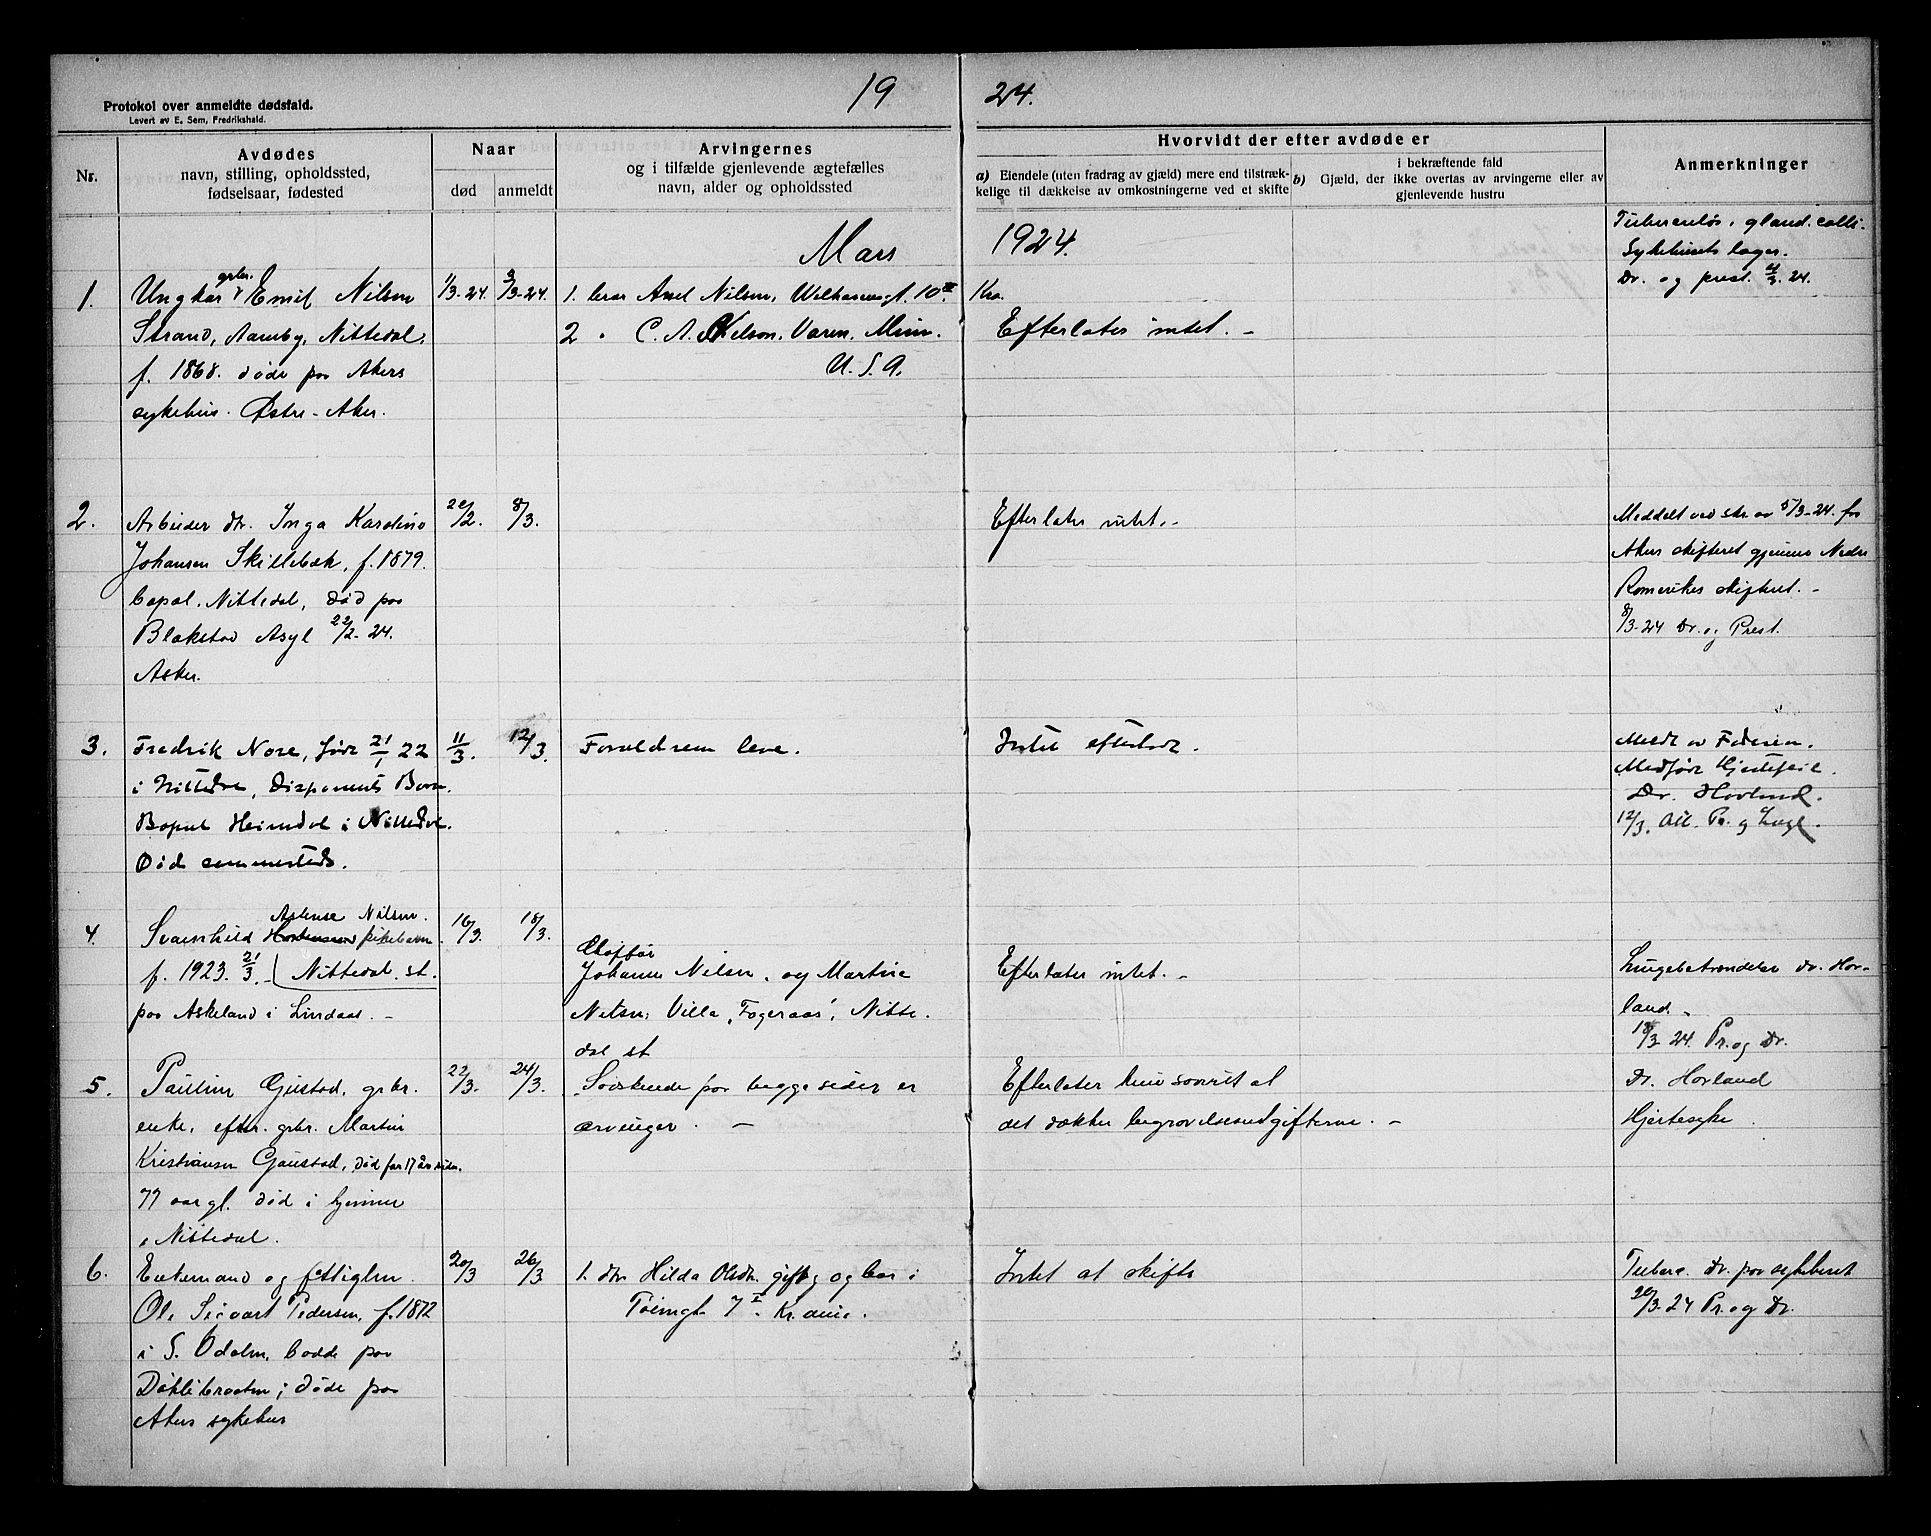 19 24.
Protokol over anmeldte dødsfald.
Levert av E. Sem, Fredrikshald.
Nr.
Avdødes
navn, stilling, opholdssted,
fødselsaar, fødested
Naar
død
anmeldt
Arvingernes
og i tilfælde gjenlevende ægtefælles
navn, alder og opholdssted
Hvorvidt der efter avdøde er
a) Eiendele (uten fradrag av gjæld) mere end tilstræk-
kelige til dækkelse av omkostningerne ved et skifte
b) i bekræftende fald
Gjæld, der ikke overtas av arvingerne eller av
gjenlevende hustru
Anmerkninger
Mars 1924.
1.
Ungkar grbr. Emil Nilsen
Strand, Aamby, Nittedal,
f. 1868. døde paa Akers
sykehus. Østre-Aker.
1/3-24.
3/3-24.
1. bror Axel Nilsen, 10 II Kra.
2 " C. A. Nelson, Varen, Minn.
U. S. A.
Efterlater intet. -
gland. colli.
Sykehusets læge.
Dr. og prest. 4/3. 24.
2.
Arbeider dtr. Inga Karoline
Johansen Skillebæk, f. 1879.
bopæl. Nittedal, død paa
Blakstad Asyl 22/2-24.
Asker.
22/2.
8/3.
Efterlater intet. -
Meddelt ved skr. av 5/3-24. fra
Akers skifteret gjennem Nedre
Romerikes skifteret. -
8/3-24 Dr. og Prest.
3.
Fredrik Nore, født 21/1 22
i Nittedal, Disponents Barn.
Bopæl Heimdal i Nittedal.
Død sammesteds.
11/3.
12/3.
Forældrene leve.
Intet efterladt.
Meldt av Faderen.
Medfødt Hjertefeil.
Dr. Hovland.
12/3. Att. Pr. og Lægl.
4.
Svanhild Hortensen Nilsen. pikebarn
f. 1923. 21/3. - Nittedal. st.
paa Askeland i Lindaas. -
16/3.
18/3.
Chaffør
Johannes Nilsen, og Martine
Nilsen, Villa "Fageraas", Nitte-
dal st
Efterlater intet. -
Lungebetændelse dr. Hov-
land. -
18/3 24. Pr. og Dr.
5.
Pauline Gaustad, grbr.
enke, efter. grbr. Martin
Kristiansen Gaustad, død for 17 år siden.
77 aar gl. død i hjemmet
i Nittedal.
22/3.
24/3.
Søskende paa begge sider er
arvinger. -
Efterlater kun saavidt at
det dækker begravelsesudgifterne. -
Dr. Hovland
Hjertesyke.
6.
Enkemand og fattiglem
Ole Sigvart Pedersen, f. 1872
i S. Odalen, bodde paa
Døhlibraaten; døde paa
Akers sykehus
20/3
26/3
1. dtr Hilda Olsdtr. gift og bor i
Tøiengt 7 I. Kr.ania.
Intet at skifte
Tuberc. Dr. paa sykehuset
26/3-24 Pr. og Dr.